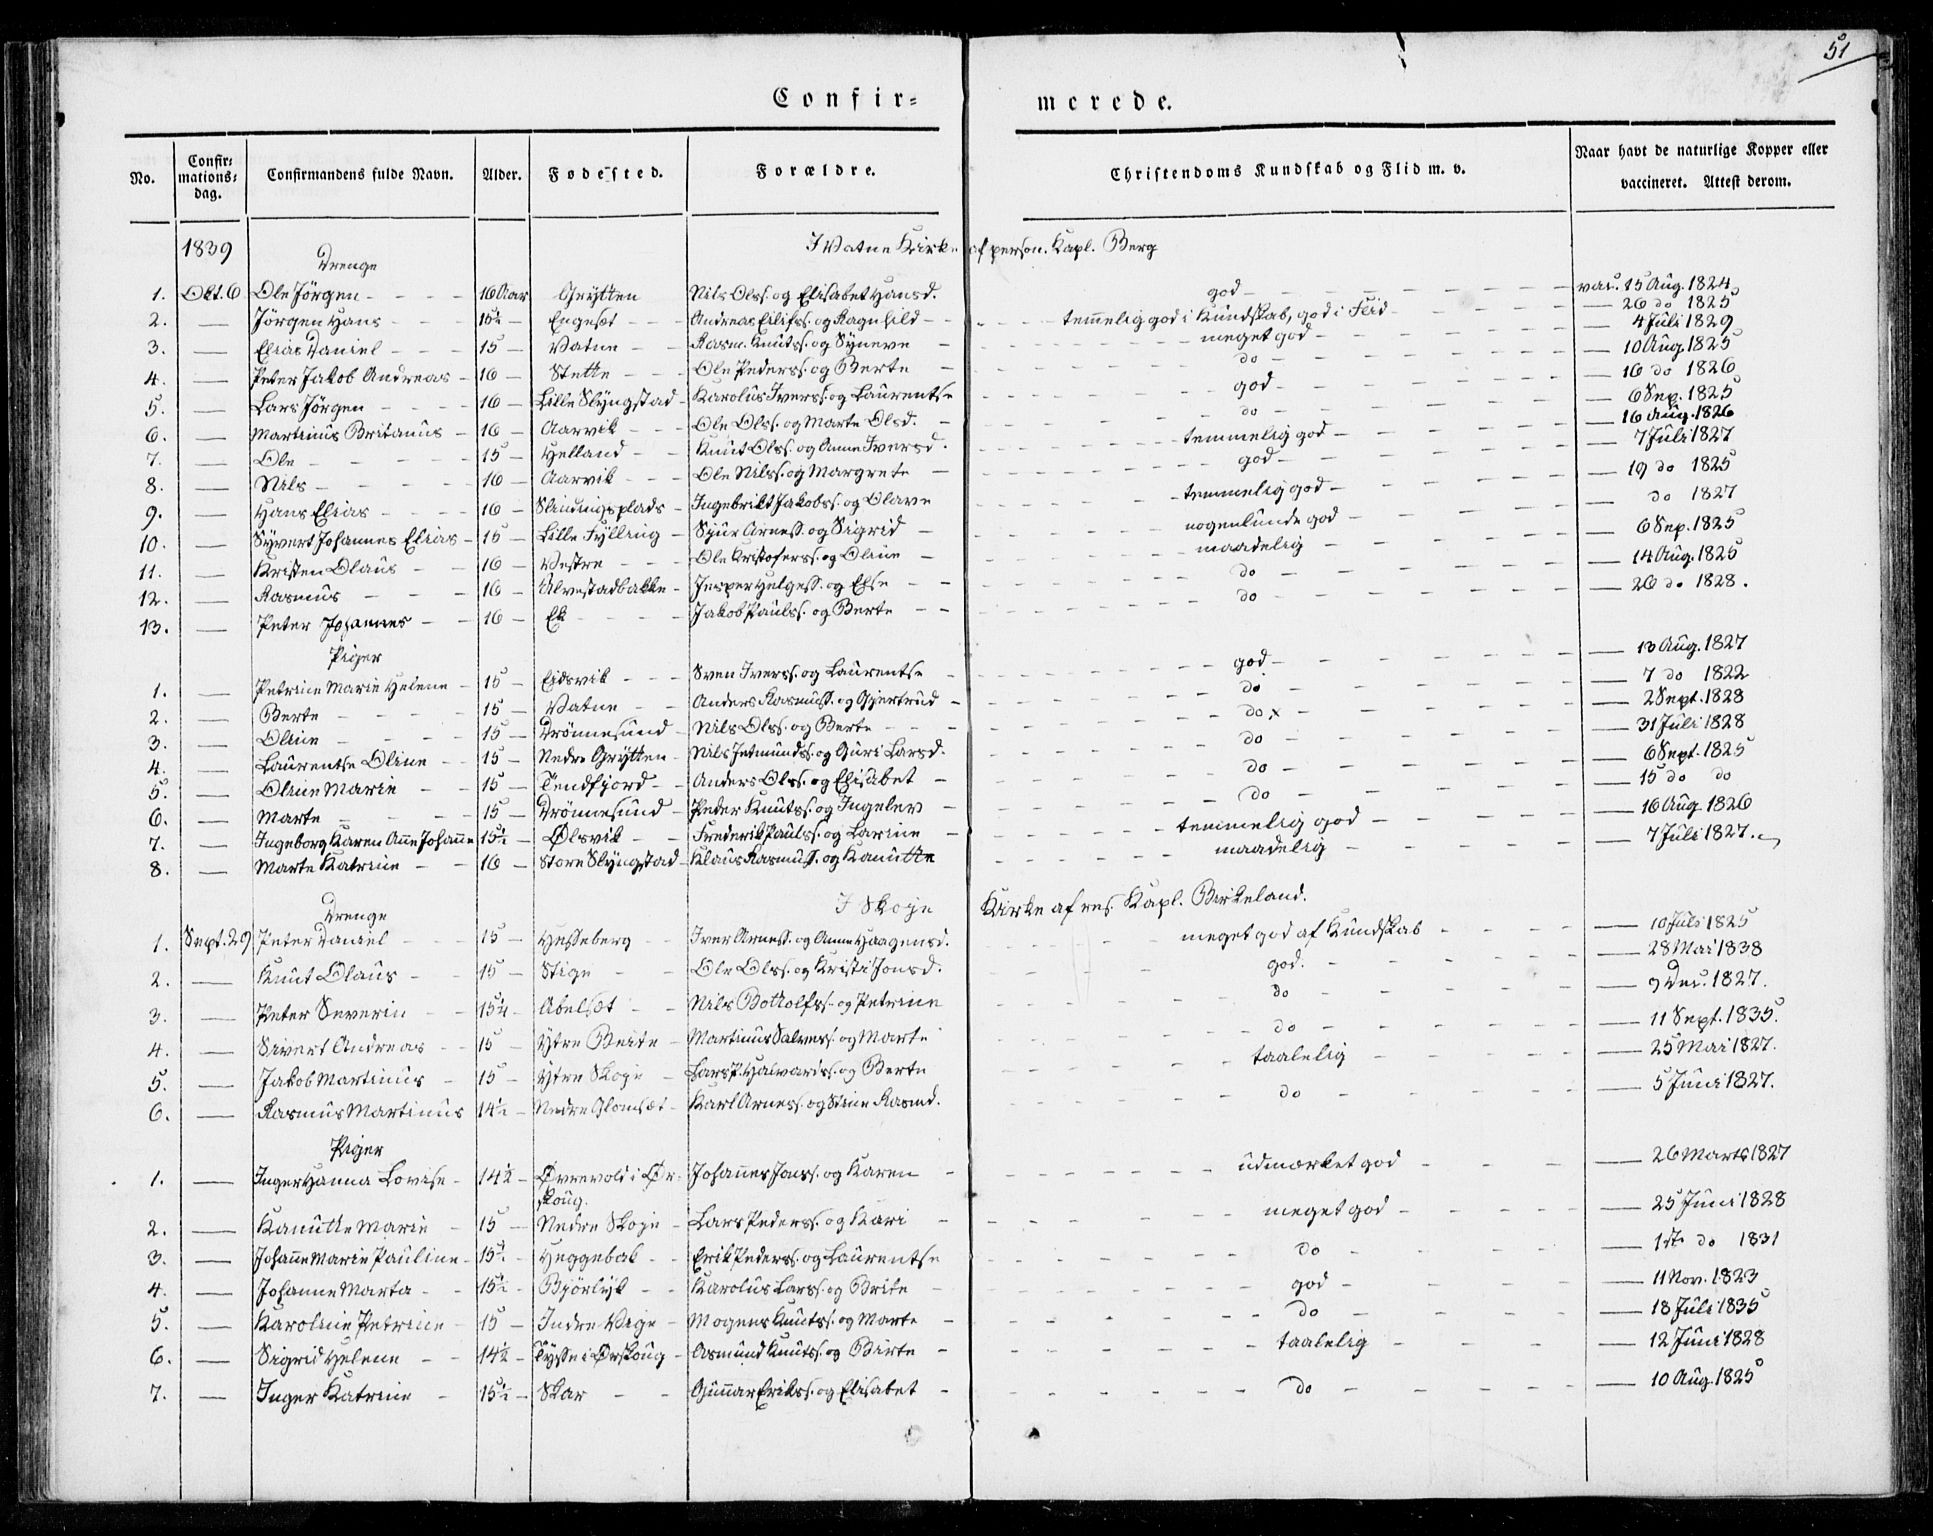 51
Confir- merede.
No. Confirmations-dag. Confirmandens fulde Navn. Alder. Fødested. Forældre. Christendoms Kundskab og Flid m. v. Naar havt de naturlige Kopper eller vaccineret. Attest derom.
1839 I Vatne Kirke af person. Kapl. Berg
Drenge
1. Okt. 6 Ole Jörgen 16 Aar Grytten Nils Olss. og Elisabet Hansd. god vac. 15 Aug. 1824
2. — Jörgen Hans 15½ Engeset Andreas Eilifss. og Ragnhild temmelig god i Kundskab, god i Flid 26 do 1825
3. — Elias Daniel 15 Vatne Rasm. Knutss. og Synneve meget god 4 Juli 1829
4. — Peter Jakob Andreas 16 Stette Ole Pederss. og Berte do 10 Aug. 1825
5. — Lars Jörgen 16 Lille Slyngstad Karolus Iverss. og Laurentse god 16 do 1826
6. — Martinus Britanus 16 Aarvik Ole Olss. og Marte Olsd. do 6 Sep. 1825
7. — Ole 15 Helland Knut Olss. og Anne Iversd. temmelig god 16 Aug. 1826
8. — Nils 16 Aarvik Ole Nilss. og Margrete god 7 Juli 1827
9. — Hans Elias 16 Slindingsplads Ingebrikt Jakobss. og Olave temmelig god 19 do 1825
10. — Syvert Johannes Elias 15 Lille Fylling Sjur Arness. og Sigrid nogenlunde god do 1827
11. — Kristen Olaus 16 Vestre Ole Kristoferss. og Oline maadelig 6 Sep. 1825
12. — Rasmus 16 Ulvestadbakke Jesper Helgess. og Else do 14 Aug. 1825
13. — Peter Johannes 16 Ek Jakob Paulss. og Berte do 26 do 1828.
Piger
1. — Petrine Marie Helene 15 Eidsvik Sven Iverss. og Laurentse god 13 Aug. 1827
2. — Berte 15 Vatne Anders Rasmuss. og Gjertrud do 7 do 1822
3. — Oline 15 Drönnesund Nils Olss. og Berte do x 2 Sept. 1828
4. — Laurentse Oline 15 Nedre Grytten Nils Jetmundss. og Guri Larsd. do 31 Juli 1828
5. — Oline Marie 15 Tendfjord Anders Olss. og Elisabet do 6 Sept. 1825
6. — Marte 15 Drönnesund Peder Knutss. og Ingelev do 15 do do
7. — Ingeborg Karen Anne Johanne 15½ Ølsvik Frederik Paulss. og Larine temmelig god 16 Aug. 1826
8. — Marte Katrine 16 Store Slyngstad Klaus Rasmuss. og Kanutte maadelig 7 Juli 1827.
I Skoje Kirke af res. Kapl. Birkeland.
Drenge
1. Sept. 29 Peter Daniel 15 Hesseberg Iver Arness. og Anne Haagensd. meget god af Kundskab 10 Juli 1825
2. — Knut Olaus 15 Stige Ole Olss. og Kristi Jonsd. god. 28 Mai 1838
3. — Peter Severin 15¼ Abelset Nils Bottolfss. og Petrine do 9 Dec. 1827.
4. — Sivert Andreas 15 Ytre Beite Martinus Salvess. og Marte do 11 Sept. 1835.
5. — Jakob Martinus 15 Ytre Skoje Lars P. Halvardss. og Berte taalelig 25 Mai 1827.
6. — Rasmus Martinus 14½ Nedre Glomset Karl Arness. og Stine Rasmd. do 5 Juni 1827.
Piger
1. — Inger Hanna Lovise 14½ Øvrevold i Ør- Johannes Jonss. og Karen udmærket god 26 Marts 1827
skoug.
2. — Kanutte Marie 15 Nedre Skoje Lars Pederss. og Kari meget god 25 Juni 1828
3. — Johanne Marie Pauline 15½ Heggebak Erik Pederss. og Laurentse do 1ste do 1831
4. — Johanne Marta 15½ Bjørlyk Karolus Larss. og Brite god 11 Nov. 1823
5. — Karoline Petrine 15 Indre Vige Mogens Knutss. og Marte do 18 Juli 1835
6. — Sigrid Helene 14½ Tysse i Ørskoug Asmund Knutss. og Birte taalelig 12 Juni 1828
7. — Inger Katrine 15½ Skar Gunnar Erikss. og Elisabet do 10 Aug. 1825